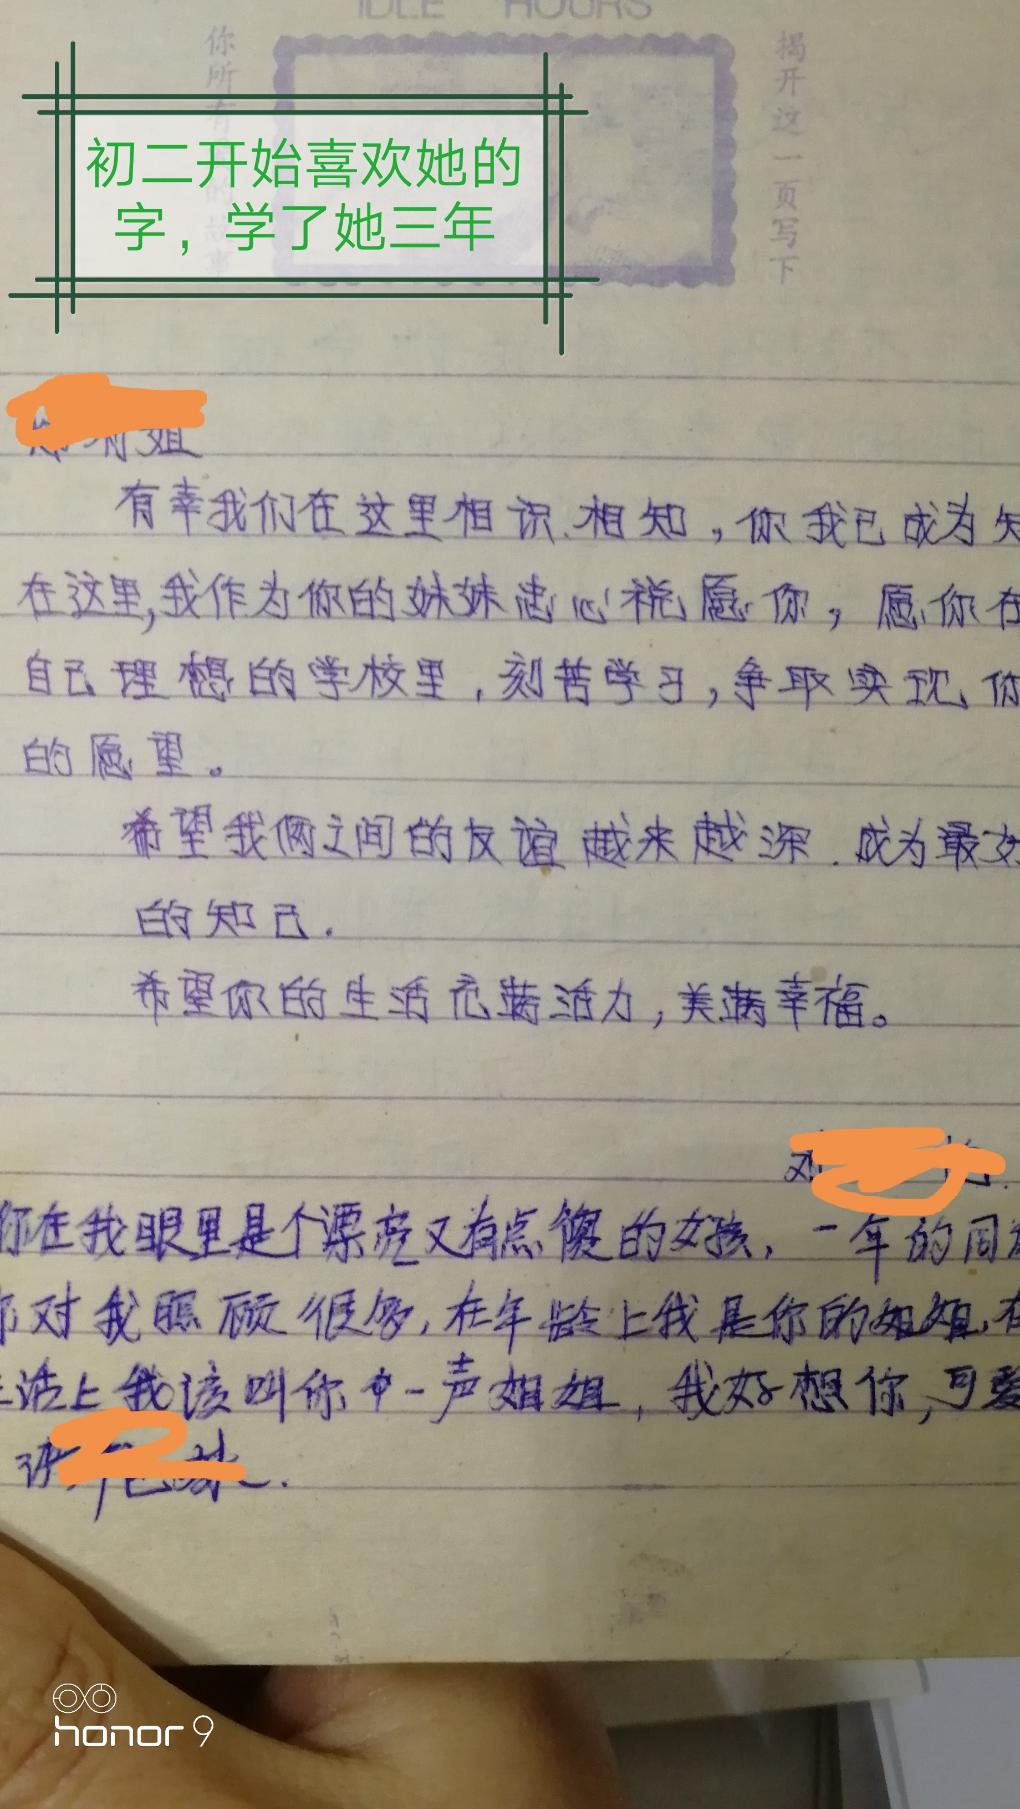 IDLE HOURS
揭开这一页写下
你所有
初二开始喜欢她的
字，学了她三年
姐
有幸我们在这里相识、相知，你我已成为知
在这里,我作为你的妹妹忠心祝愿你，愿你在
自己理想的学校里，刻苦学习，争取实现你
的愿望。
希望我俩之间的友谊越来越深.成为最好
的知己.
希望你的生活充满活力，美满幸福。
你在我眼里是个漂亮又有点傻的女孩，一年的同
你对我照顾很多,在年龄上我是你的姐姐,在
生活上我该叫你中一声姐姐，我好想你,可爱
honor 9